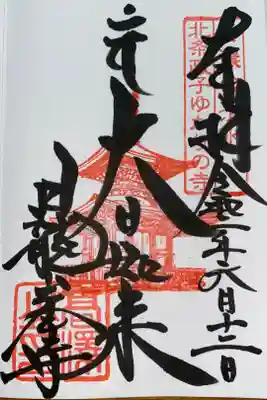 奉拝 令和二年六月
北条政子ゆかりの寺
大日如来
日龍峯寺